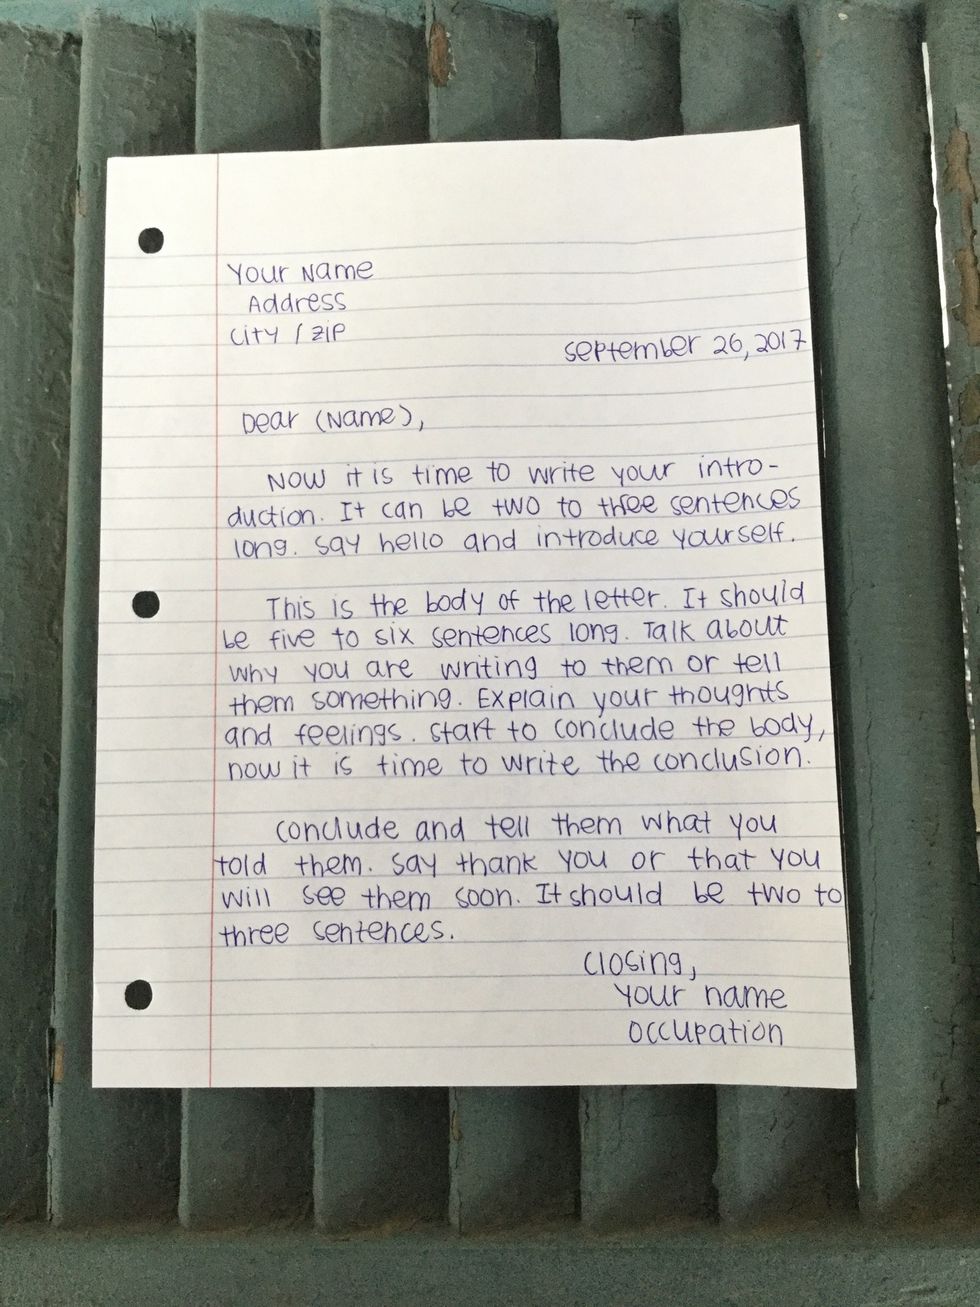 Your Name
Address
City / ZIP
september 26, 2017
Dear (Name),
Now it is time to write your intro-
duction. It can be two to three sentences
long. say hello and introduce yourself.
This is the body of the letter. It should
be five to six sentences long. Talk about
why you are writing to them or tell
them something. Explain your thoughts
and feelings. start to conclude the body,
now it is time to write the conclusion.
conclude and tell them what you
told them. say thank you or that you
will see them soon. It should be two to
three sentences.
closing,
your name
occupation